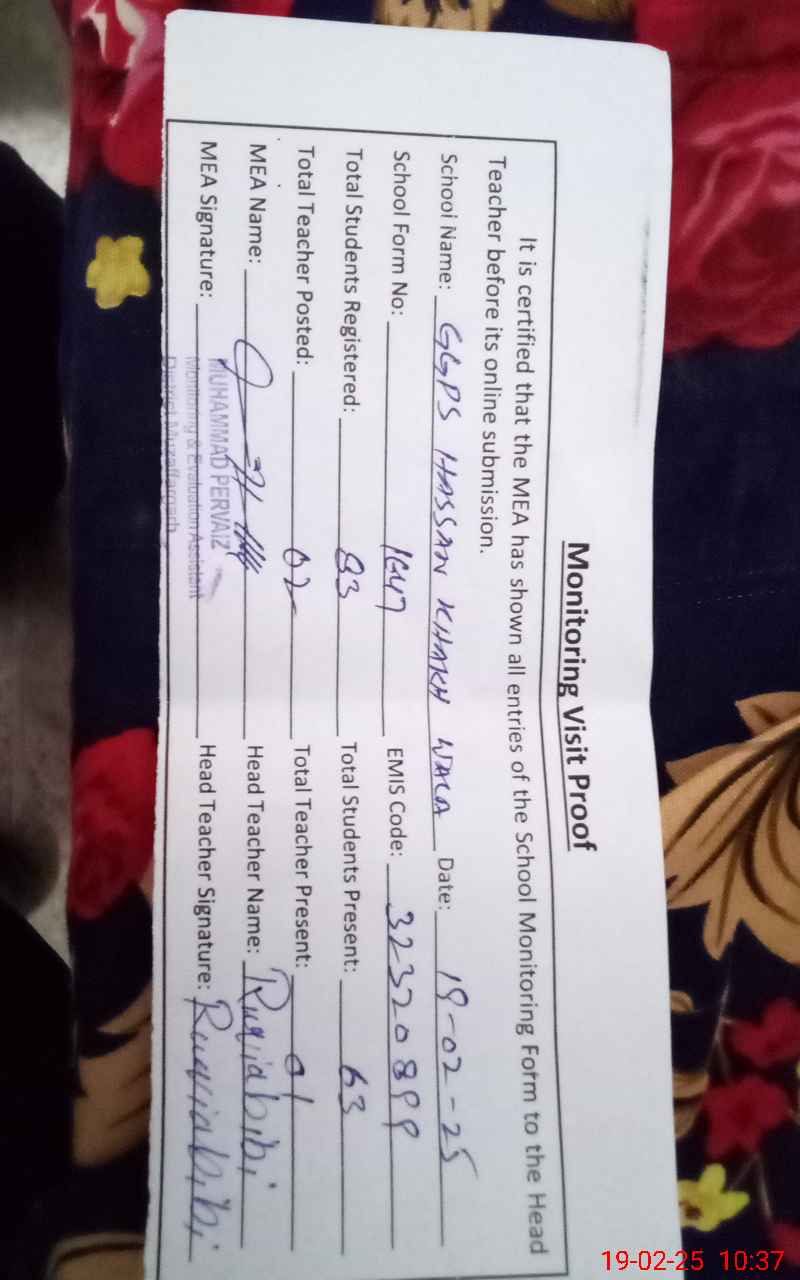 Monitoring Visit Proof
It is certified that the MEA has shown all entries of the School Monitoring Form to the Head
Teacher before its online submission.
School Name: GGPS HASSAN KHAKH WALA Date: 19-02-25
School Form No: 1647 EMIS Code: 32320899
Total Students Registered: 83 Total Students Present: 63
Total Teacher Posted: 02 Total Teacher Present: 01
MEA Name: Head Teacher Name: Ruqiabibi
MEA Signature: Head Teacher Signature: Ruqiabibi
MUHAMMAD PERVAIZ
Monitoring & Evaluation Assistant
District Muzaffargarh
19-02-25 10:37